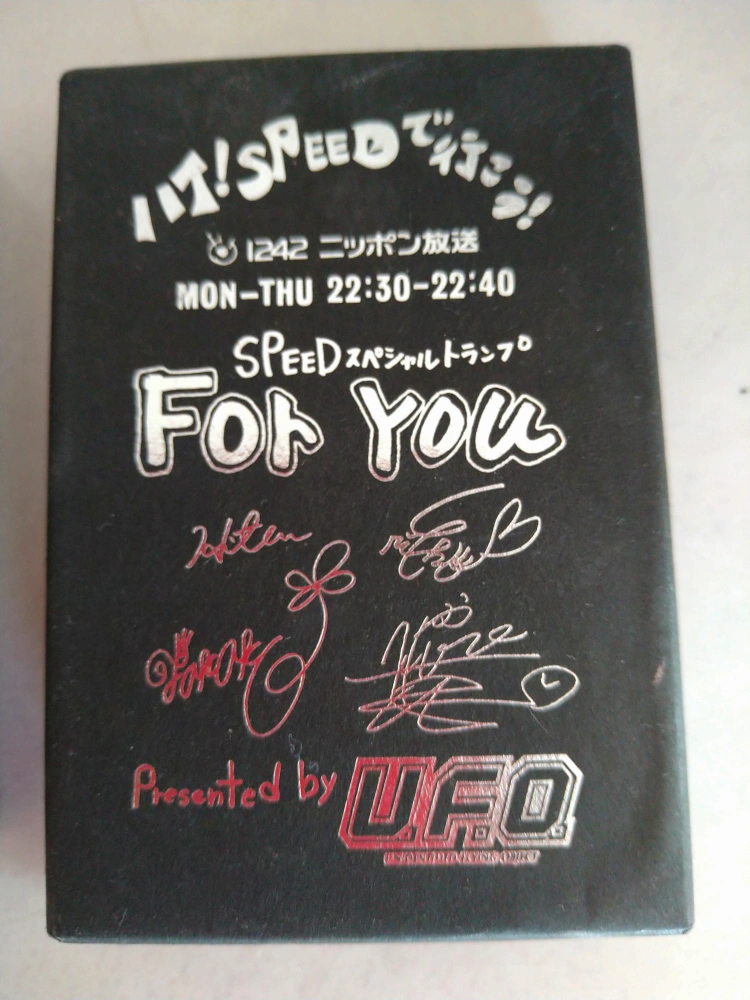 ハイ!SPEEDで行こう!
1242 ニッポン放送
MON-THU 22:30-22:40
SPEEDスペシャルトランプ
FOR YOU
Hiten
Presented by U.F.O.